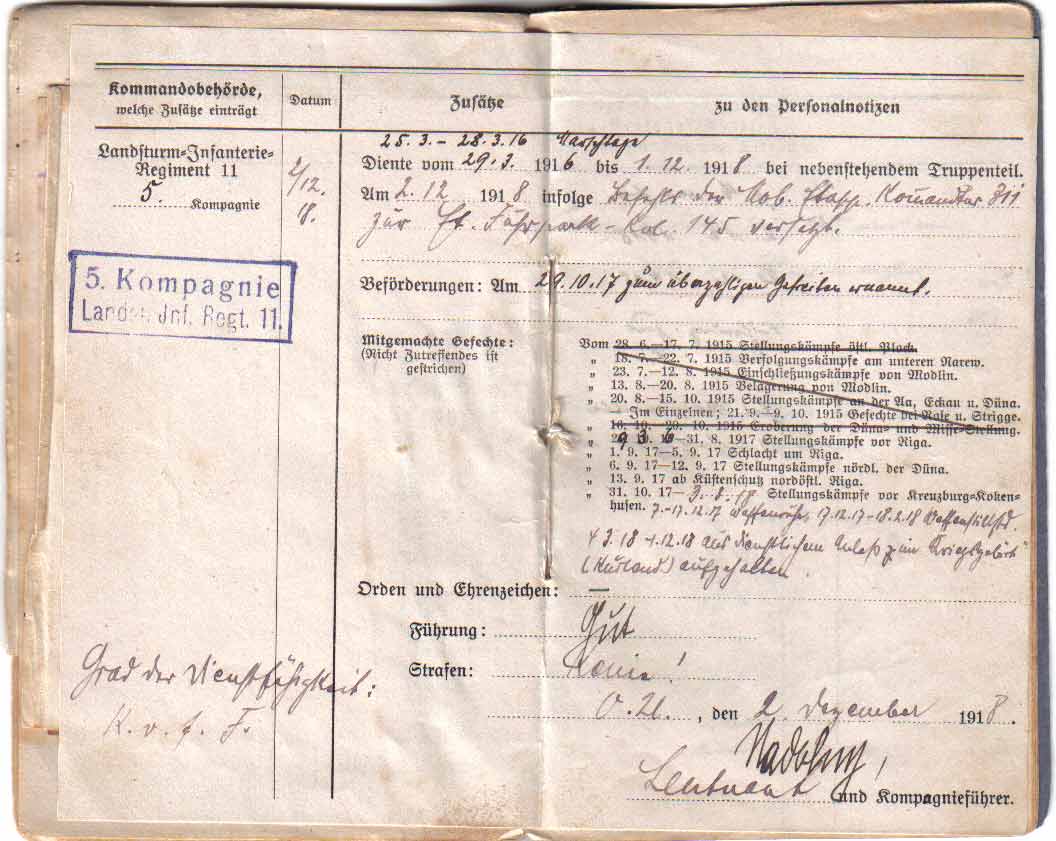 Kommandobehörde,
welche Zusätze einträgt
Datum
Zusätze zu den Personalnotizen
Landsturm-Infanterie-
Regiment 11
5. Kompagnie
2/12.
18.
5. Kompagnie
Landst. Inf. Regt. 11.
25.3. – 28.3.16 Marschtage
Diente vom 29.3. 1916 bis 1.12. 1918 bei nebenstehendem Truppenteil.
Am 2.12 1918 infolge Befehls der Mob. Etapp. Komandtur 311
zur Et. Fuhrpark-Kol. 145 versetzt.
Beförderungen: Am 29.10.17 zum überzähligen Gefreiten ernannt.
Mitgemachte Gefechte:
(Nicht Zutreffendes ist
gestrichen)
Vom 28. 6.—17. 7. 1915 Stellungskämpfe östl. Plock.
„ 18. 7.—22. 7. 1915 Verfolgungskämpfe am unteren Narew.
„ 23. 7.—12. 8. 1915 Einschließungskämpfe von Modlin.
„ 13. 8.—20. 8. 1915 Belagerung von Modlin.
„ 20. 8.—15. 10. 1915 Stellungskämpfe an der Aa, Eckau u. Düna.
Im Einzelnen; 21. 9.—9. 10. 1915 Gefechte bei Kase u. Strigge.
„ 16. 10.—20. 10. 1915 Eroberung der Düna- und Misse-Stellung.
„ 29 3 16—31. 8. 1917 Stellungskämpfe vor Riga.
„ 1. 9. 17—5. 9. 17 Schlacht um Riga.
„ 6. 9. 17—12. 9. 17 Stellungskämpfe nördl. der Düna.
„ 13. 9. 17 ab Küstenschutz nordöstl. Riga.
„ 31. 10. 17— 3.3.18 Stellungskämpfe vor Kreuzburg-Koken-
husen. 7.-17.12.17 Waffenruhe, 17.12.17-18.2.18 Waffenstillstd.
4 3.18 -1.12.18 aus dienstlichem Anlaß im Kriegsgebiet
(Kurland) aufgehalten.
Orden und Ehrenzeichen: —
Führung: Gut
Strafen: Keine!
O. U., den 2. Dezember 1918.
Grad der Dienstfähigkeit:
K. v. f. F.
Nadolny,
Leutnant und Kompagnieführer.